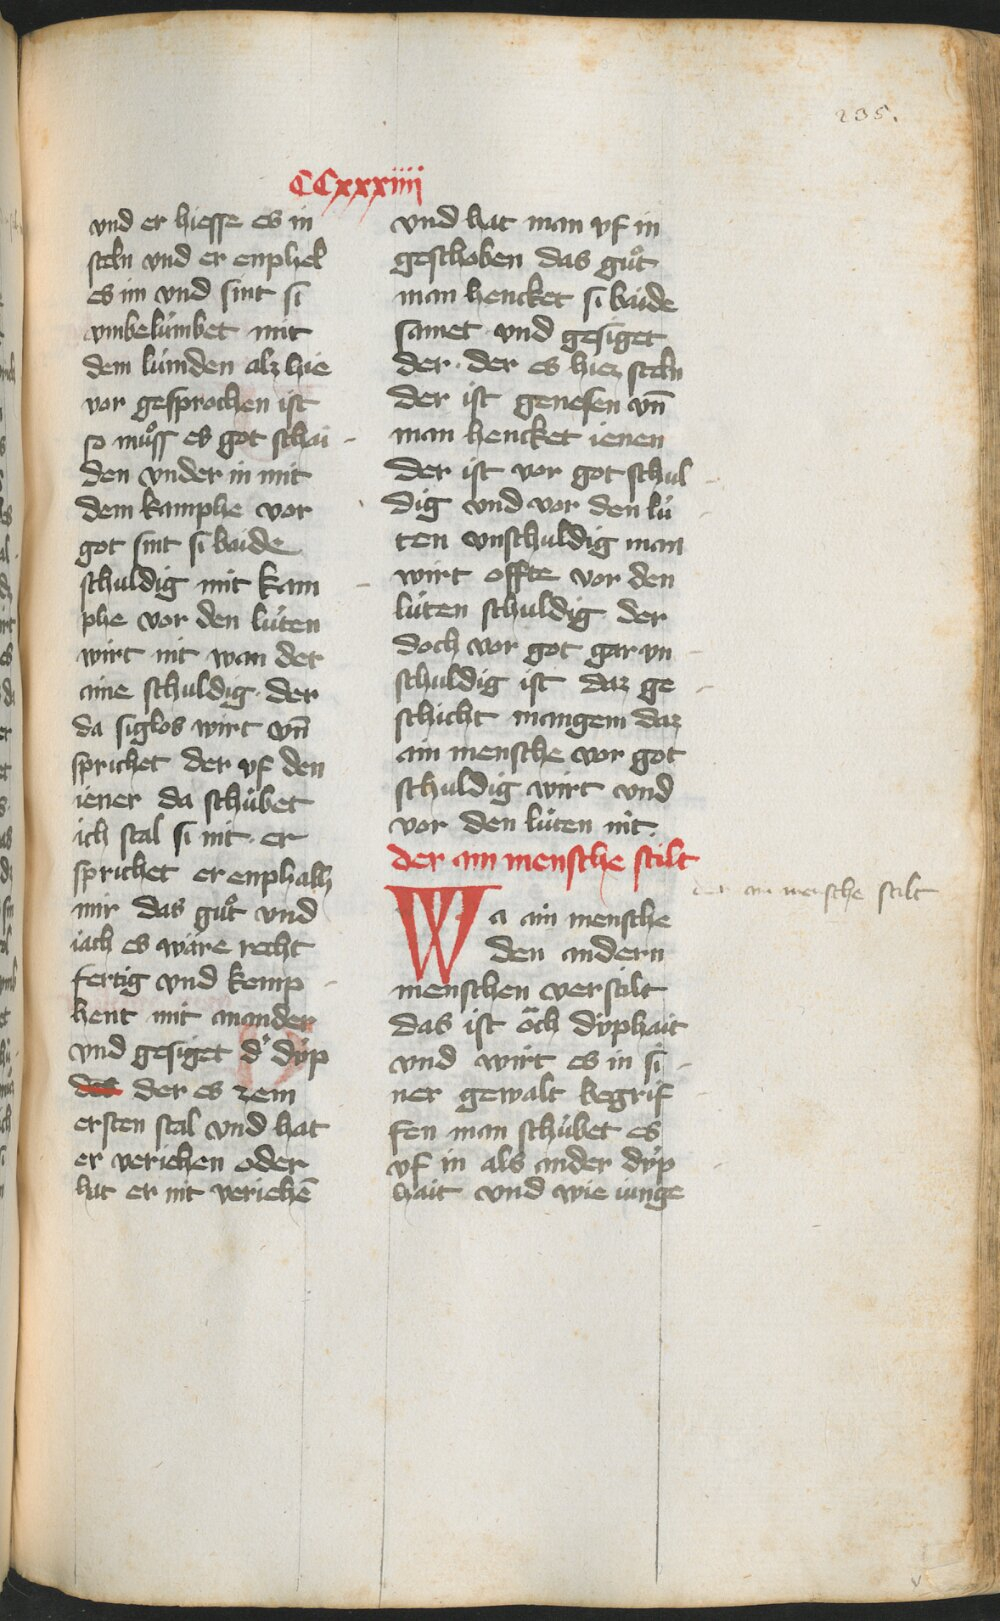 235.
CCxxxiiii
vnd er hiesse es in
steln vnd er enphel
es im vnd sint si
vmbelúmbet mit
dem lúmden alz hie
vor gesprochen ist
so muͦss es got schai
den vnder in mit
dem kamphe vor
got sint si baide
schuldig mit kam
phe vor den lúten
wirt nit wan der
aine schuldig. der
da siglos wirt vn̄
sprichet der vf den
iener da schúbet
ich stal si nit. er
sprichet er enphalh
mir das guͦt vnd
iach es wäre recht
fertig vnd kemp
hent mit anander
vnd gesiget d' dyp
des der es zem
ersten stal vnd hat
er veriehen oder
hat er nit veriehē
vnd hat man vf in
geschoben das guͦt
man hencket si baide
samet vnd gesiget
der. der es hiez steln
der ist genesen vn̄
man hencket ienen
der ist vor got schul
dig vnd vor den lú
ten vnschuldig man
wirt offte vor den
lúten schuldig der
doch vor got gar vn
schuldig ist daz ge
schicht mangem daz
ain mensche vor got
schuldig wirt vnd
vor den lúten nit.
der ain mensche stilt
Wa ain mensche
den andern
menschen verstilt
das ist öch dyphait
vnd wirt es in si
ner gewalt begrif
fen man schúbet es
vf in als ander dyp
hait vnd wie iunge
der ain mensche stilt